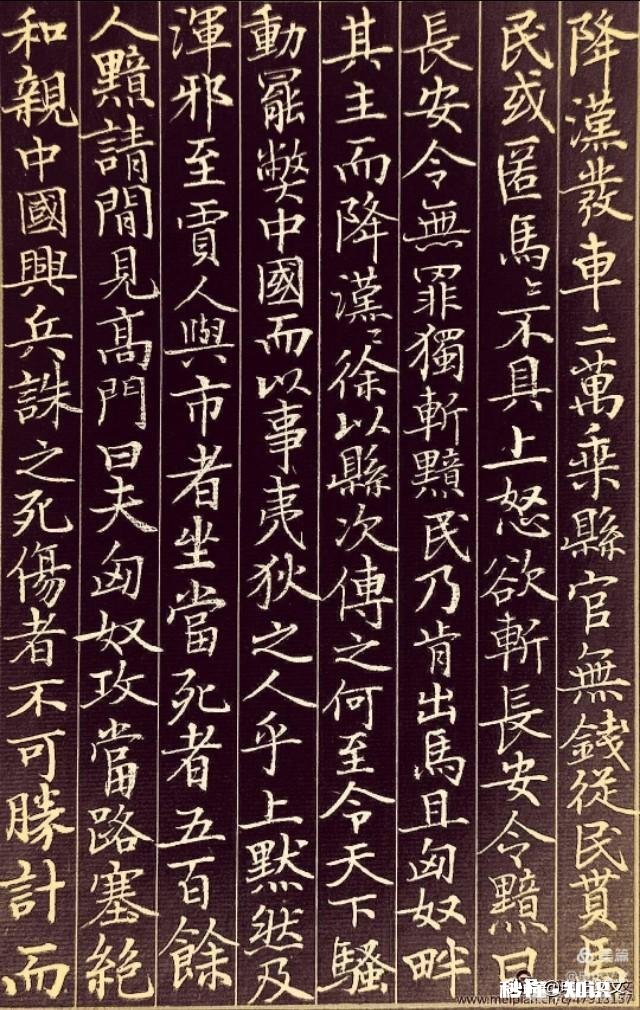 降漢發車二萬乘縣官無錢從民貰
民或匿馬〻不具上怒欲斬長安令黯曰
長安令無罪獨斬黯民乃肯出馬且匈奴畔
其主而降漢〻徐以縣次傳之何至令天下騷
動罷弊中國而以事夷狄之人乎上默然及
渾邪至賈人與市者坐當死者五百餘
人黯請閒見髙門曰夫匈奴攻當路塞絕
和親中國興兵誅之死傷者不可勝計而
美篇